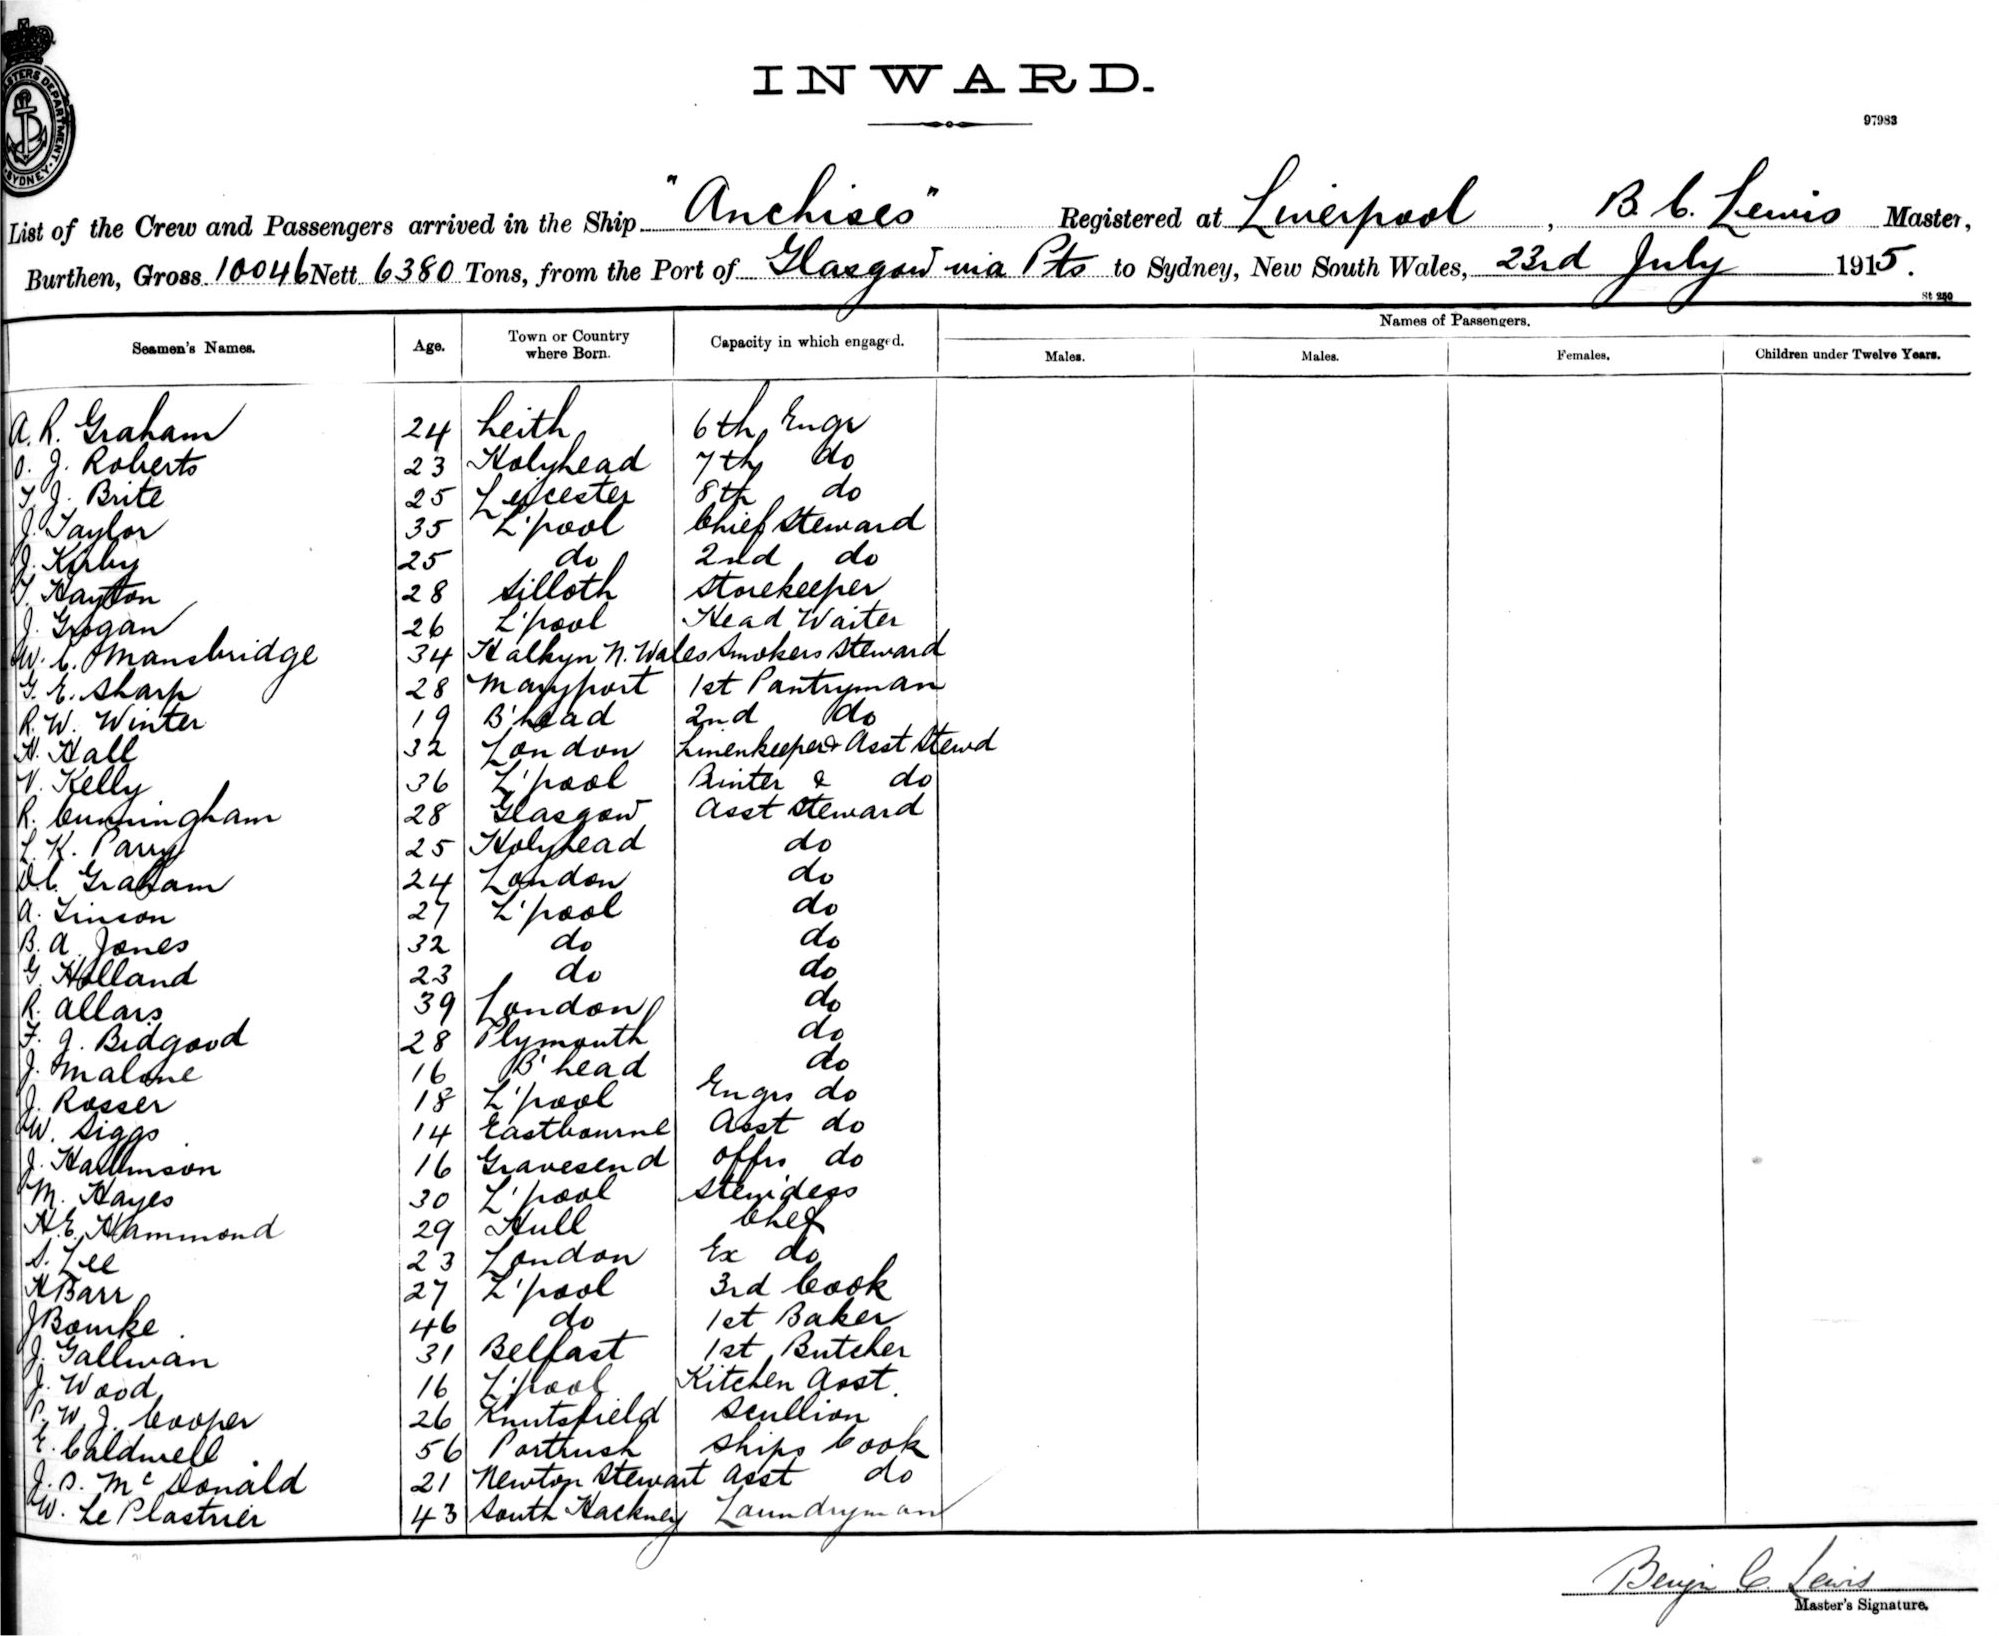 INWARD.
97983
MASTERS DEPARTMENT. SYDNEY
List of the Crew and Passengers arrived in the Ship "Anchises" Registered at Liverpool, B. C. Lewis Master,
Burthen, Gross 10046 Nett 6380 Tons, from the Port of Glasgow via Pts to Sydney, New South Wales, 23rd July 1915.
St 250
Names of Passengers.
Seamen's Names. Age. Town or Country where Born. Capacity in which engaged. Males. Males. Females. Children under Twelve Years.
A. R. Graham 24 Leith 6th Engr
O. J. Roberts 23 Holyhead 7th do
T. J. Brite 25 Leicester 8th do
J. Taylor 35 L'pool Chief Steward
J. Kirby 25 do 2nd do
T. Hayton 28 Silloth Storekeeper
J. Grogan 26 L'pool Head Waiter
W. C. Mansbridge 34 Halkyn N. Wales Smokers Steward
G. E. Sharp 28 Maryport 1st Pantryman
R. W. Winter 19 B'head 2nd do
H. Hall 32 London Linenkeeper & Asst Stewd
V. Kelly 36 L'pool Printer & do
R. Cunningham 28 Glasgow Asst Steward
L. K. Parry 25 Holyhead do
Graham 24 London do
A. Linson 27 L'pool do
B. A. Jones 32 do do
G. Holland 23 do do
R. Allars 39 London do
F. J. Bidgood 28 Plymouth do
J. Malone 16 B'head do
J. Rosser 18 L'pool Engrs do
W. Siggs 14 Eastbourne Asst do
J. 16 Gravesend Offrs do
M. Hayes 30 L'pool Stewidess
H. E. Hammond 29 Hull Chef
S. Lee 23 London Ex do
H Barr 27 L'pool 3rd Cook
J Bourke 46 do 1st Baker
J. Gallwan 31 Belfast 1st Butcher
J. Wood 16 L'pool Kitchen Asst.
P. W. J. Cooper 26 Knutsfield Scullion
E. Caldwell 56 Portrush Ships Cook
J. S. McDonald 21 Newton Stewart Asst do
W. Le Plastrier 43 South Hackney Laundryman
Benjn C. Lewis
Master's Signature.